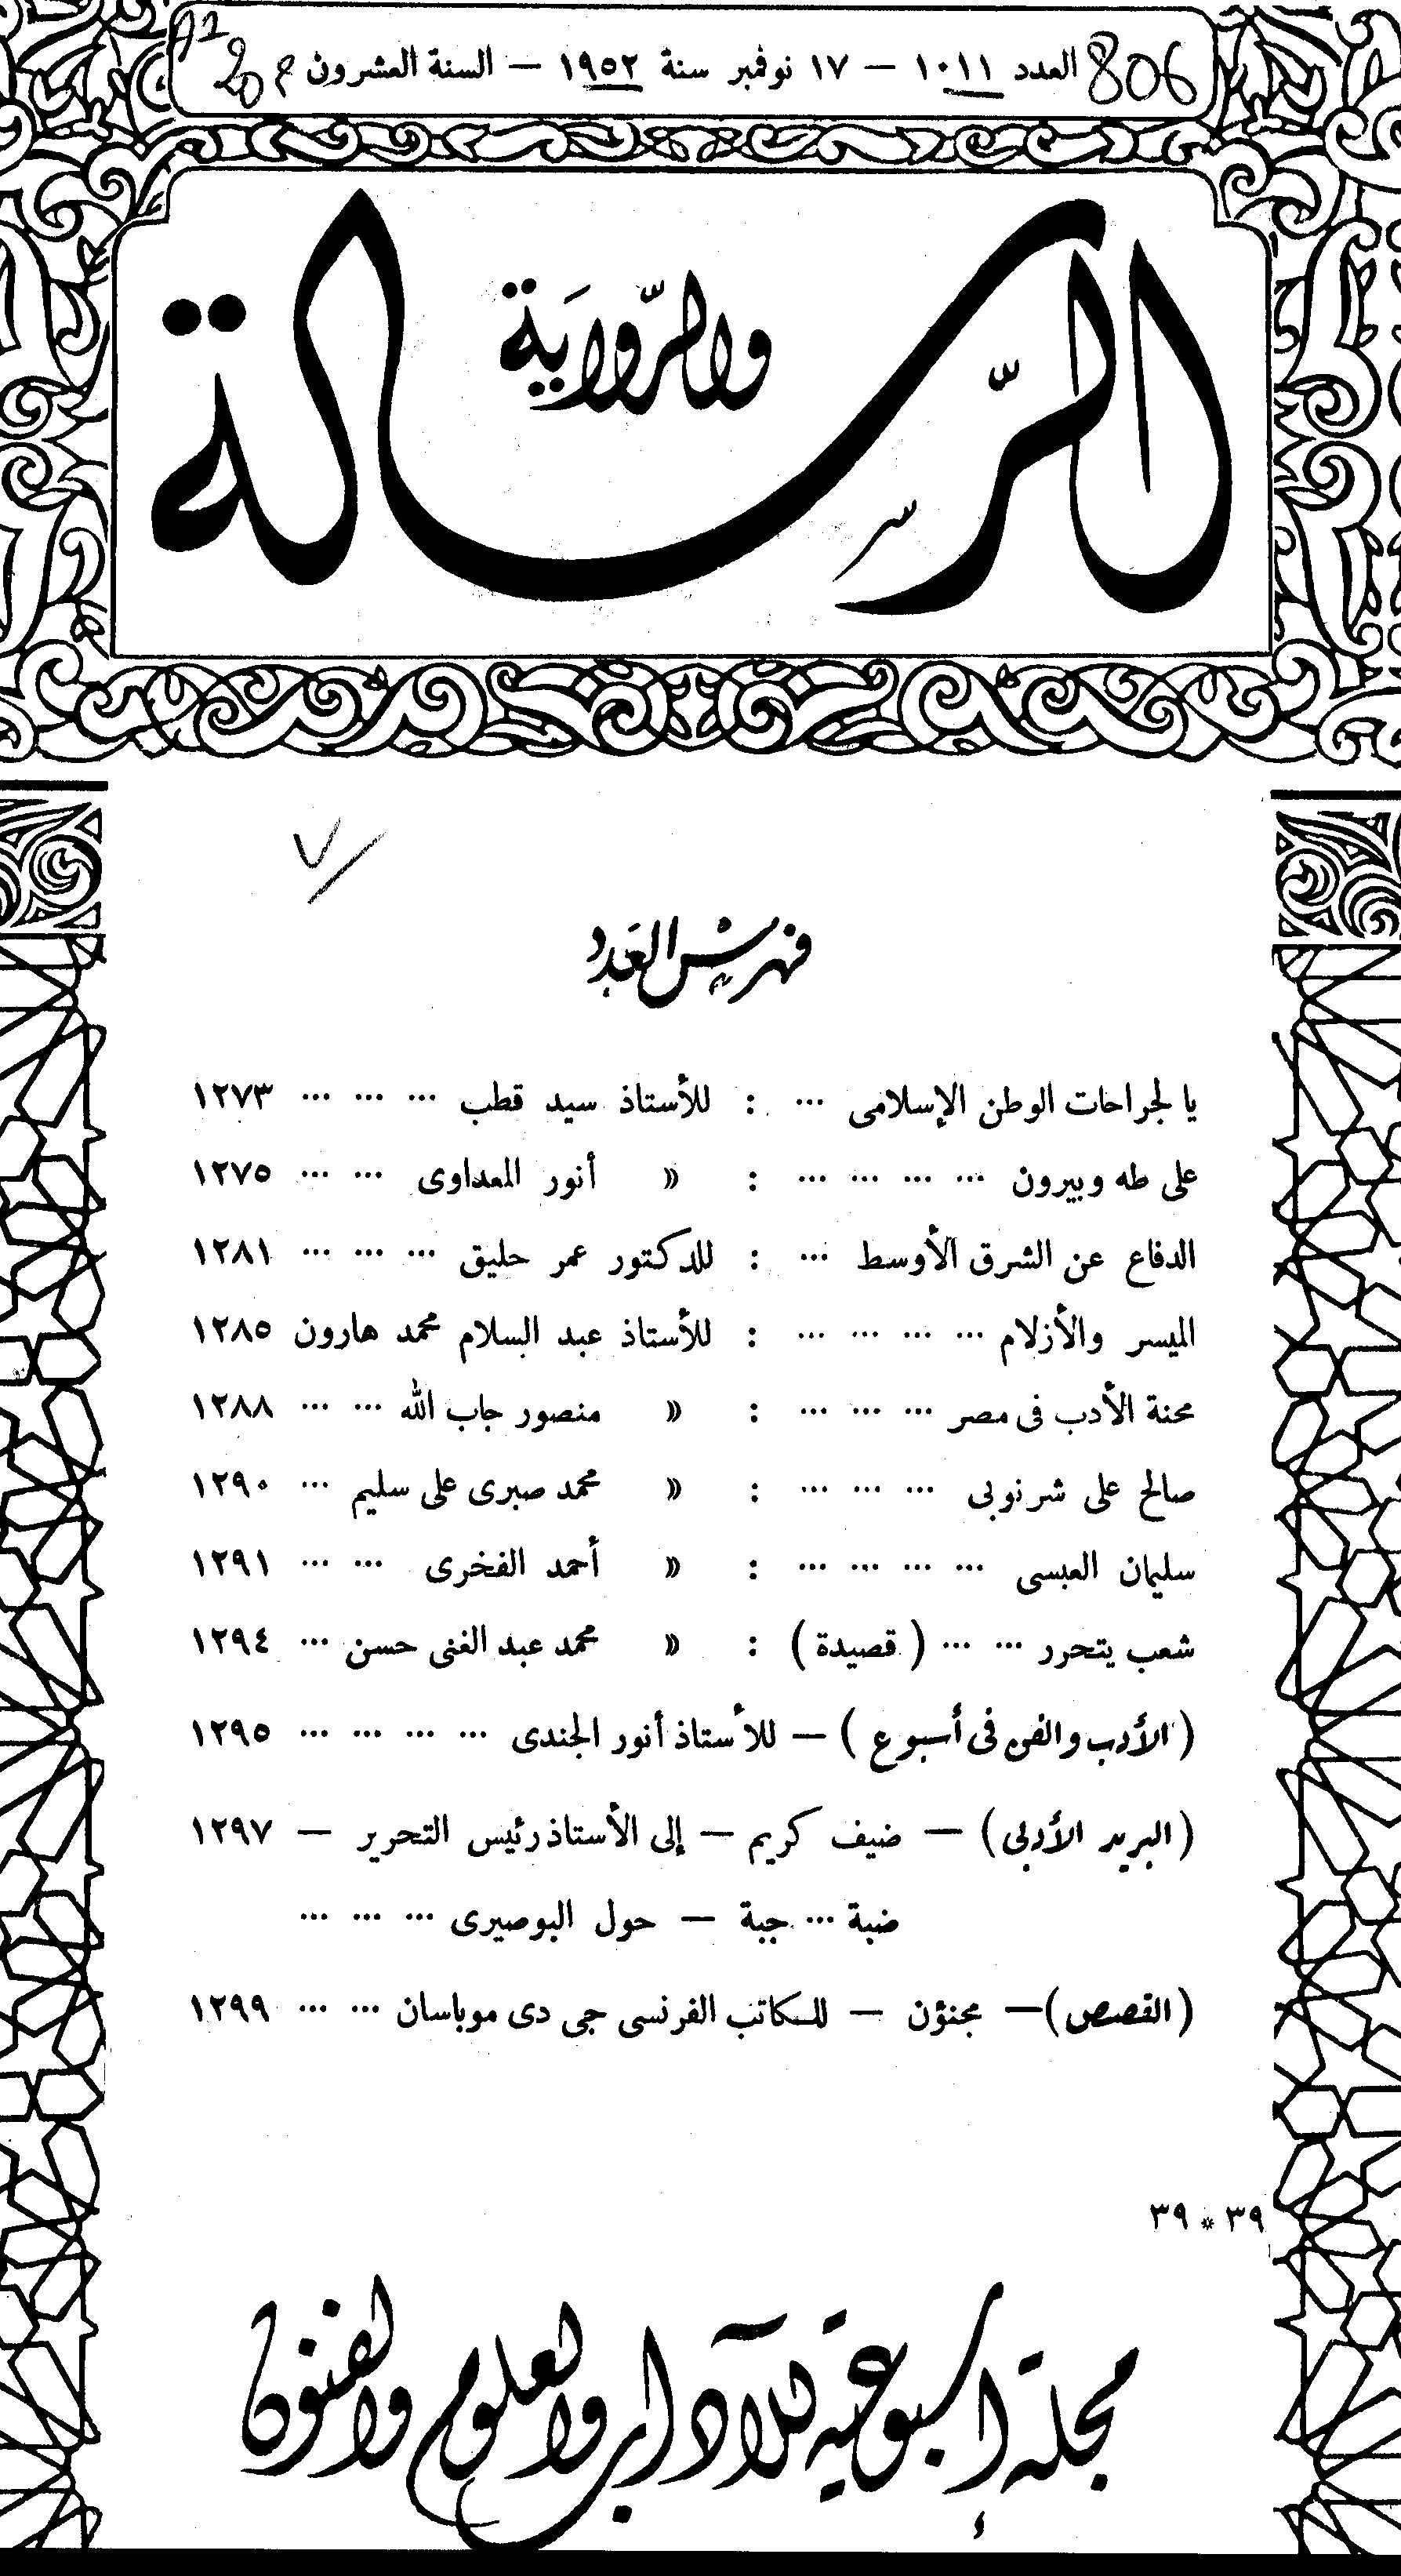 806 العدد ١٠١١ — ١٧ نوفمبر سنة ١٩٥٢ — السنة العشرون
الرسالة
والرواية
فهرس العدد
يا لجراحات الوطن الإسلامى ... : للأستاذ سيد قطب ... ... ... ١٢٧٣
على طه وبيرون ... ... ... ... : « أنور المعداوى ... ... ١٢٧٥
الدفاع عن الشرق الأوسط ... : للدكتور عمر حليق ... ... ... ١٢٨١
الميسر والأزلام ... ... ... ... : للأستاذ عبد السلام محمد هارون ١٢٨٥
محنة الأدب فى مصر ... ... ... : « منصور جاب الله ... ... ١٢٨٨
صالح على شرنوبى ... ... ... : « محمد صبرى على سليم ... ١٢٩٠
سليمان العبسى ... ... ... ... : « أحمد الفخرى ... ... ١٢٩١
شعب يتحرر ... ... ( قصيدة ) : « محمد عبد الغنى حسن ... ١٢٩٤
( الأدب والفن فى أسبوع ) — للأستاذ أنور الجندى ... ... ... ... ١٢٩٥
( البريد الأدبى ) — ضيف كريم — إلى الأستاذ رئيس التحرير — ١٢٩٧
ضبة ... جبة — حول البوصيرى ... ... ...
( القصص ) — مجنون — للكاتب الفرنسى جى دى موباسان ... ... ١٢٩٩
٣٩ * ٣٩
مجلة إسبوعية للآداب والعلوم والفنون